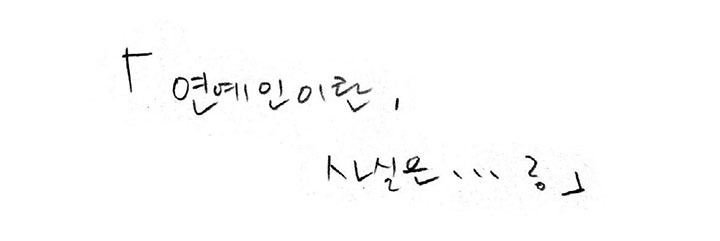 「연예인이란,
사실은... 콩」